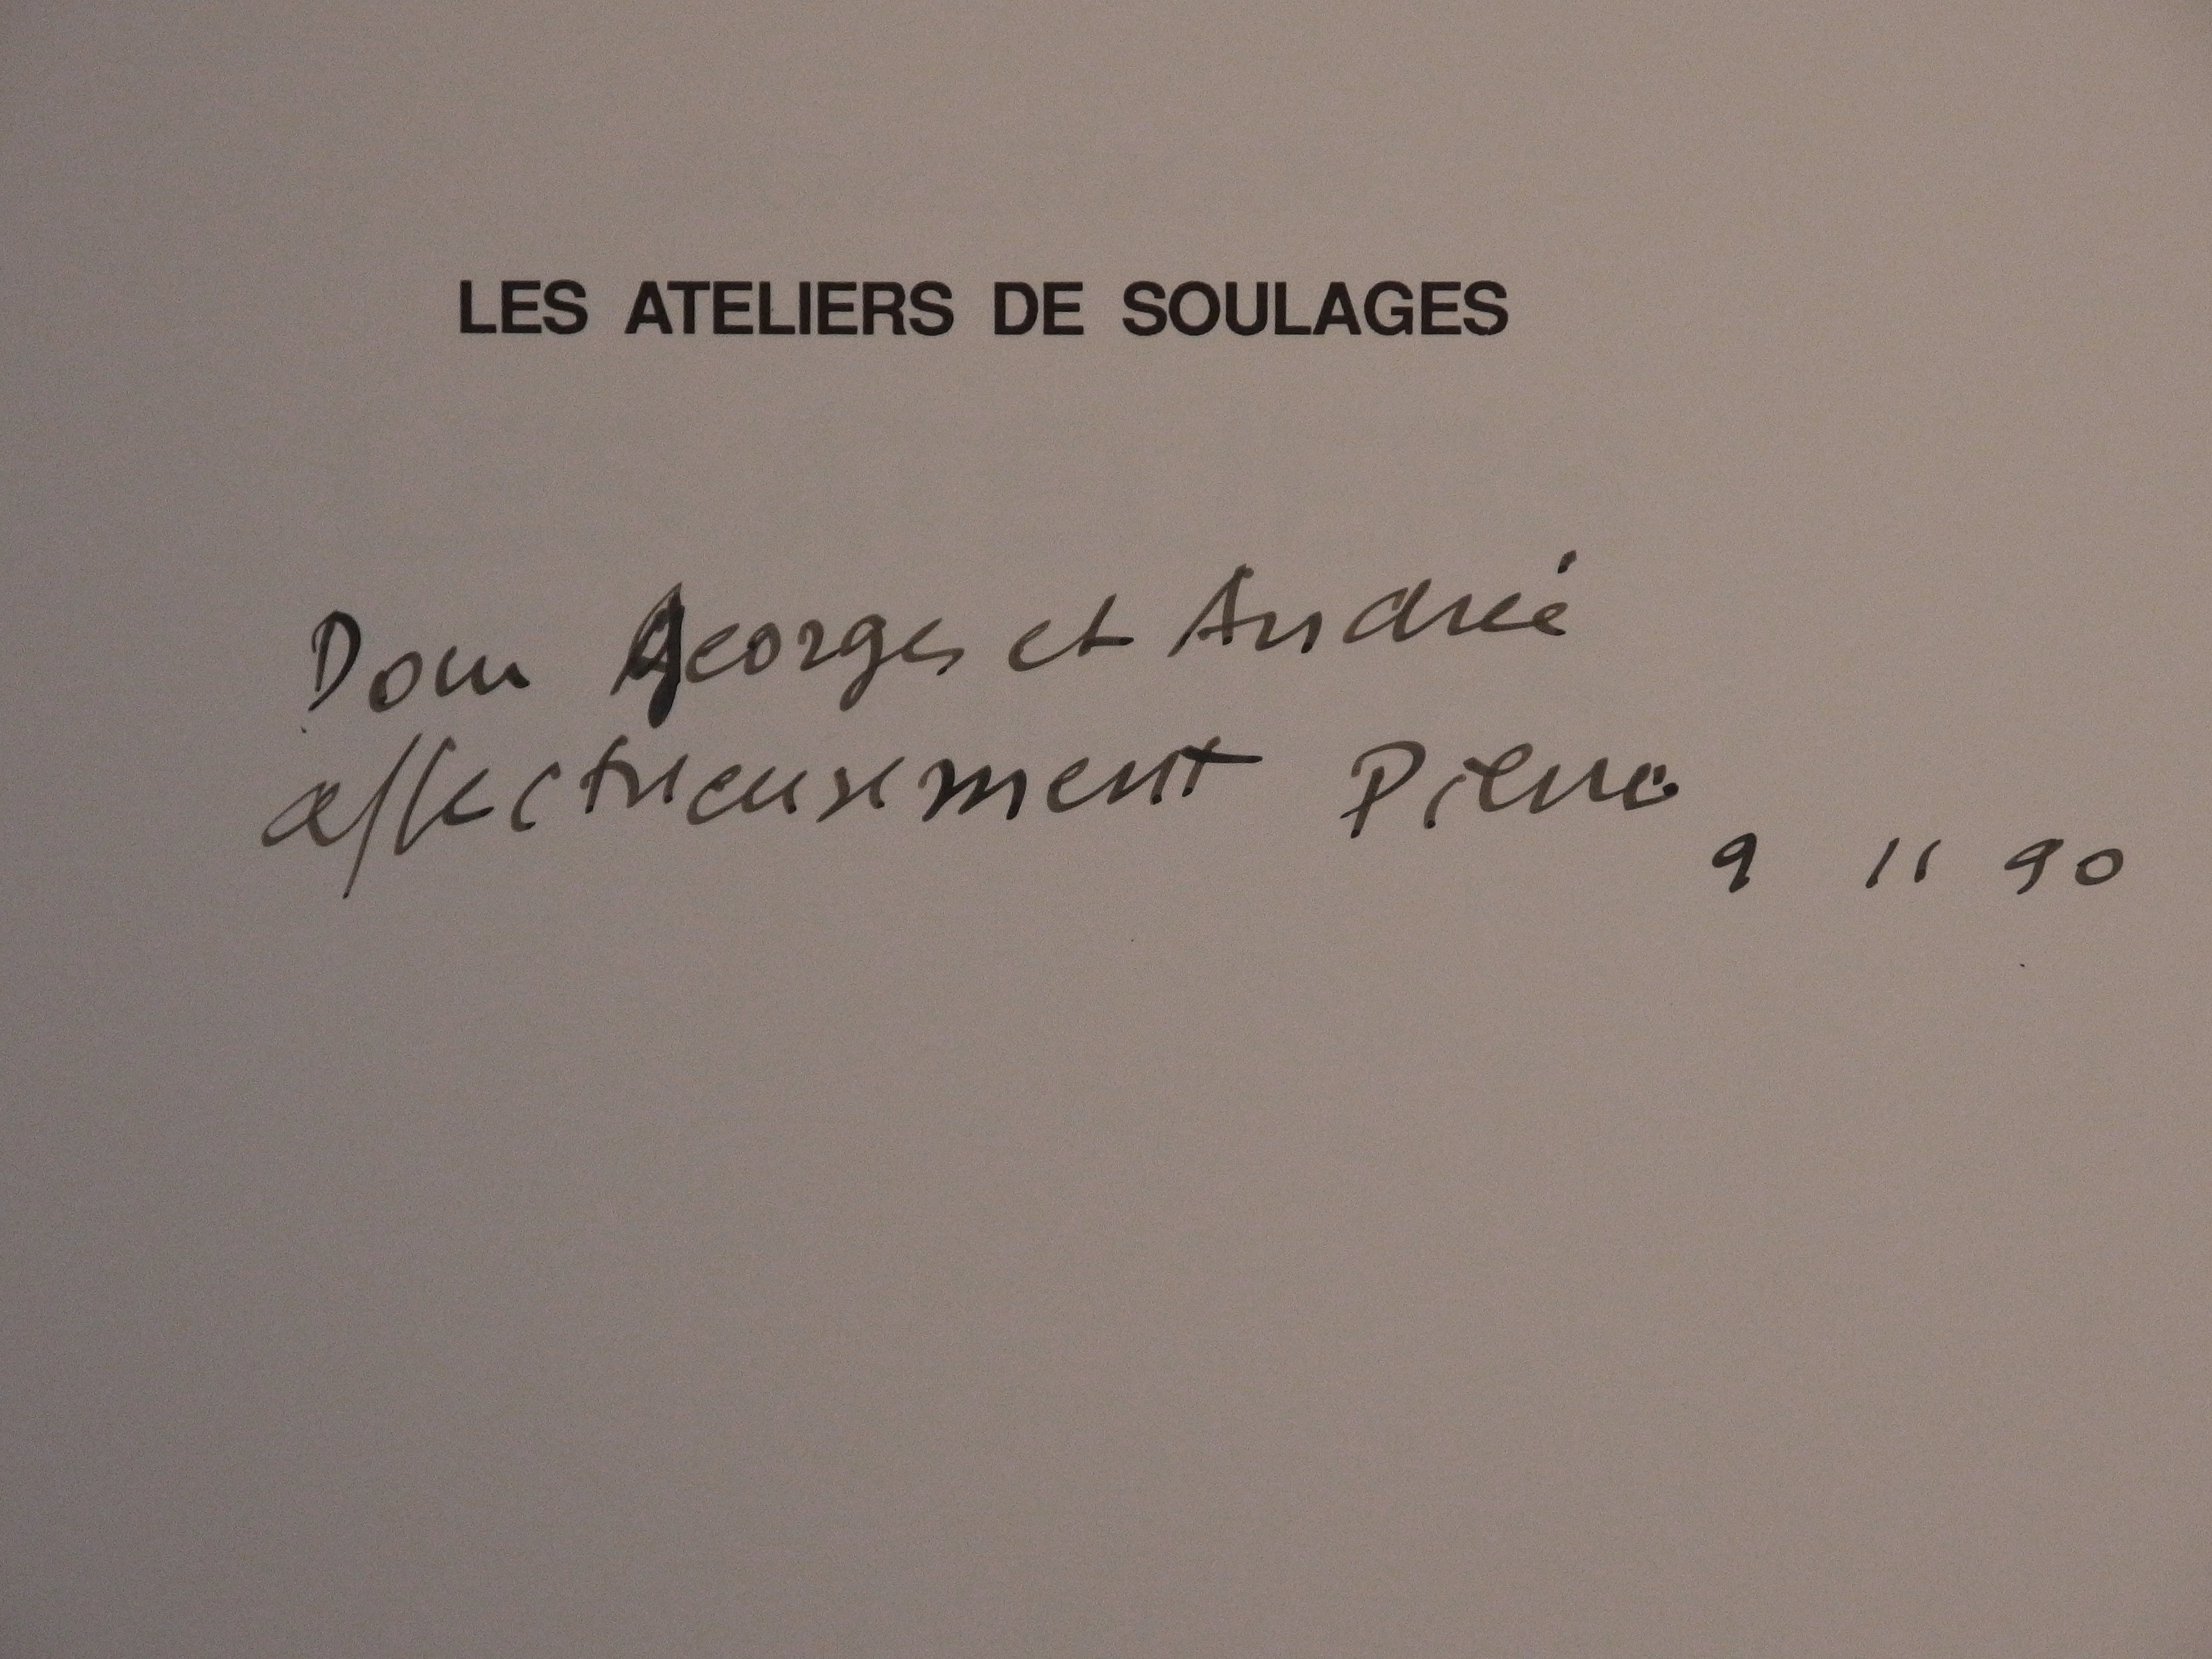 LES ATELIERS DE SOULAGES
Pour Georges et Andrée
affectueusement Pierre
9 11 90